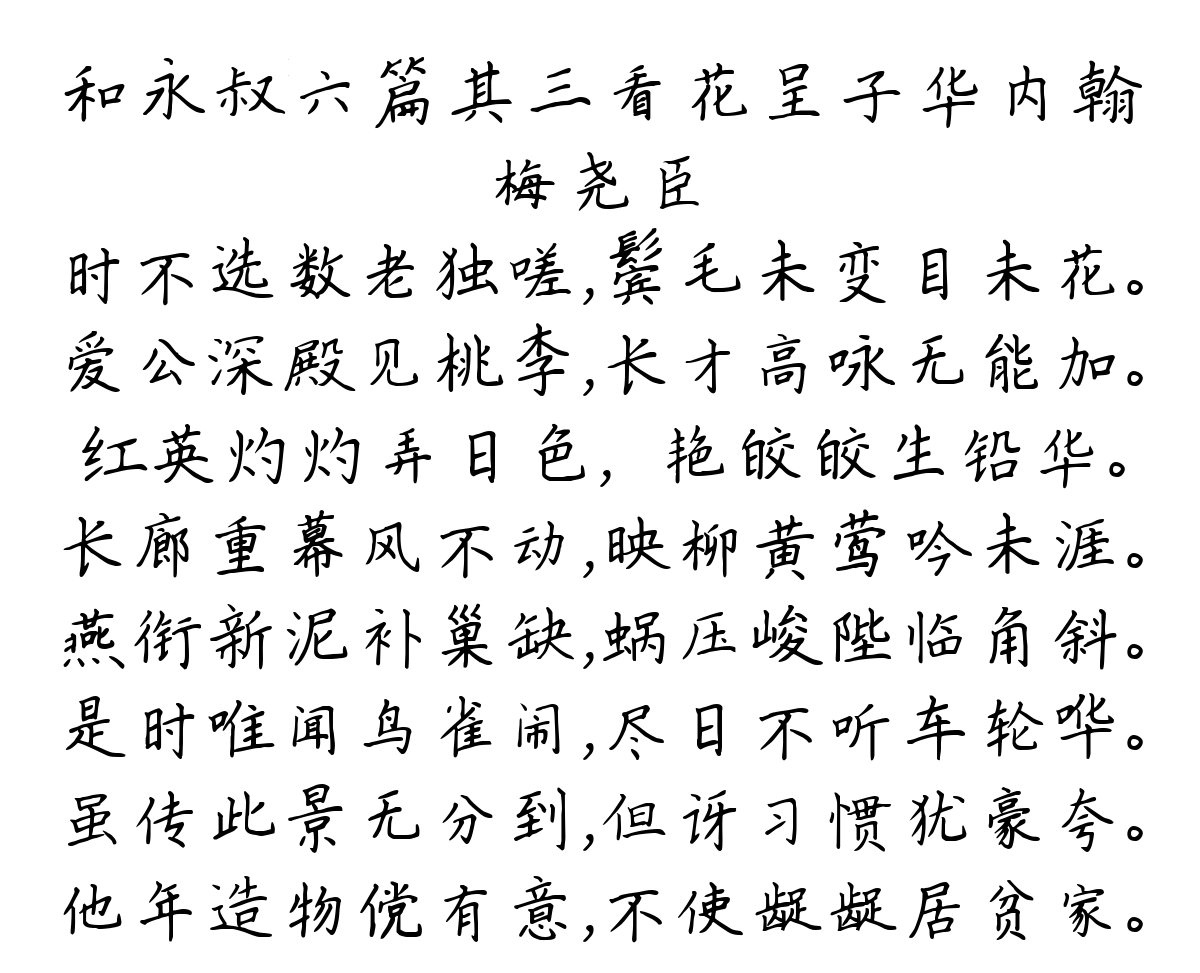 和永叔六篇其三看花呈子华内翰
梅尧臣
时不选数老独嗟,鬓毛未变目未花。
爱公深殿见桃李,长才高咏无能加。
红英灼灼弄日色,艳皎皎生铅华。
长廊重幕风不动,映柳黄莺吟未涯。
燕衔新泥补巢缺,蜗压峻陛临角斜。
是时唯闻鸟雀闹,尽日不听车轮哗。
虽传此景无分到,但讶习惯犹豪夸。
他年造物傥有意,不使龊龊居贫家。